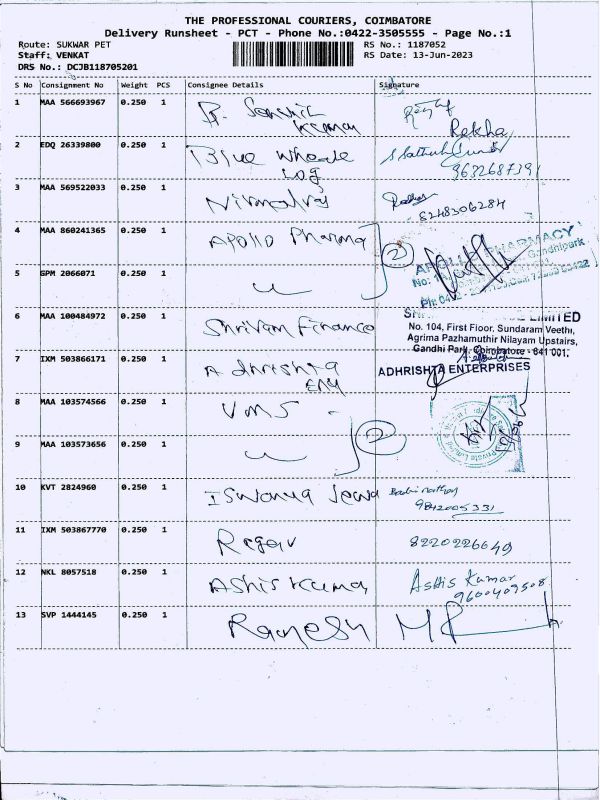 THE PROFESSIONAL COURIERS, COIMBATORE
Delivery Runsheet - PCT - Phone No.:0422-3505555 - Page No.:1
Route: SUKWAR PET RS No.: 1187052
Staff: VENKAT RS Date: 13-Jun-2023
DRS No.: DCJB118705201
S No Consignment No Weight PCS Consignee Details Signature
1 MAA 566693967 0.250 1 Kumar Rekha
2 EDQ 26339800 0.250 1 Blue Whale Log S Sathish Kumar
9632687391
3 MAA 569522033 0.250 1 Nirmalraj
8248306284
4 MAA 860241365 0.250 1 Apollo Pharma 2 PHARMACY
Gandhipark
5 GPM 2066071 0.250 1
6 MAA 100484972 0.250 1 Shriram Finance LIMITED
No. 104, First Floor, Sundaram Veethi,
Agrima Pazhamuthir Nilayam Upstairs,
Gandhi Park, Coimbatore - 641 001.
7 IXM 503866171 0.250 1 Adhrishta ADHRISHTA ENTERPRISES
8 MAA 103574566 0.250 1 VMS - 2
9 MAA 103573656 0.250 1
Private Limited
10 KVT 2824960 0.250 1 Iswarya
9842005331
11 IXM 503867770 0.250 1 8220226649
12 NKL 8057518 0.250 1 Ashis Kumar Ashis Kumar
9600409508
13 SVP 1444145 0.250 1 Ramesh